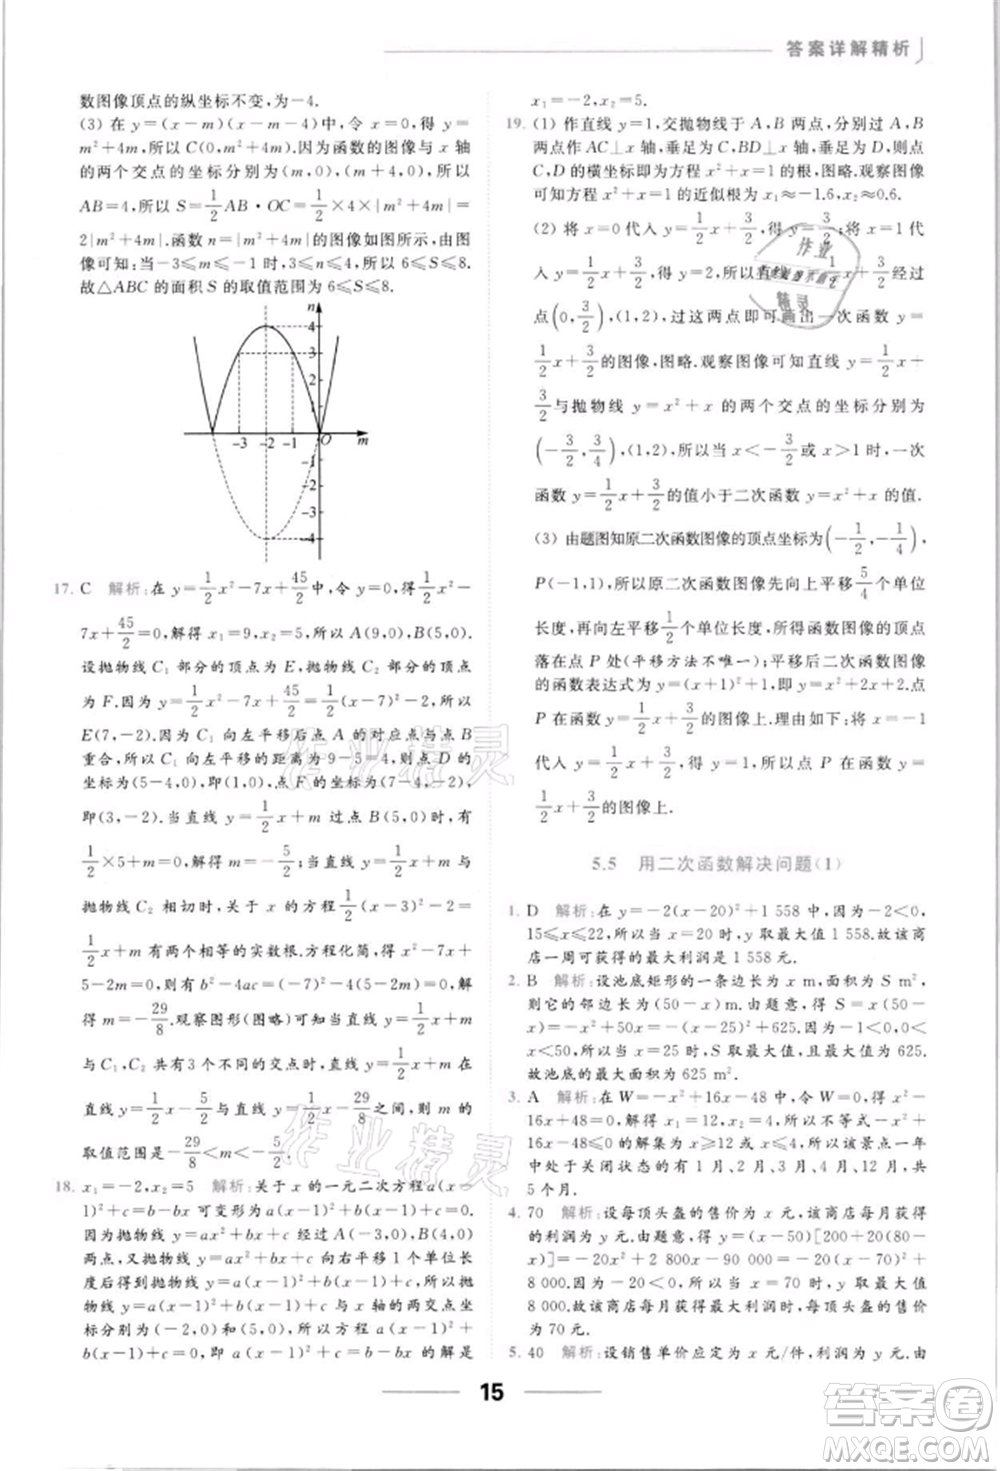 答案详解精析
数图像顶点的纵坐标不变,为-4.
(3) 在 y=(x-m)(x-m-4)中,令 x=0,得 y=
m²+4m,所以 C(0,m²+4m).因为函数的图像与 x 轴
的两个交点的坐标分别为(m,0),(m+4,0),所以
AB=4,所以 S=1/2 AB·OC=1/2×4×|m²+4m|=
2|m²+4m|.函数 n=|m²+4m|的图像如图所示,由图
像可知:当-3≤m≤-1时,3≤n≤4,所以 6≤S≤8.
故△ABC 的面积 S 的取值范围为 6≤S≤8.
n
4
3
-3 -2 -1 O m
-1
-2
-3
-4
17. C 解析:在 y=1/2x²-7x+45/2中,令 y=0,得1/2x²-
7x+45/2=0,解得 x₁=9,x₂=5,所以 A(9,0),B(5,0).
设抛物线 C₁ 部分的顶点为 E,抛物线 C₂ 部分的顶点
为 F.因为 y=1/2x²-7x+45/2=1/2(x-7)²-2,所以
E(7,-2).因为 C₁ 向左平移后点 A 的对应点与点 B
重合,所以 C₁ 向左平移的距离为 9-5=4,则点 B 平移后
的坐标为(1,0),点 F 的坐标为(7-4,-2),
即(3,-2).当直线 y=1/2x+m 过点 B(5,0)时,
1/2×5+m=0,解得 m=-5/2.当直线 y=1/2x+m 与
抛物线 C₂ 相切时,关于 x 的方程1/2(x-3)²-2=
1/2x+m 有两个相等的实数根.方程化简,得 x²-7x+
5-2m=0,所以 b²-4ac=(-7)²-4(5-2m)=0,解
得 m=-29/8.观察图形(图略)可知当直线 y=1/2x+m
与 C₁、C₂ 共有3个不同的交点时,直线 y=1/2x+m 在
直线 y=1/2x-5/2与直线 y=1/2x-29/8之间,则 m 的
取值范围是-29/8<m<-5/2.
18. x₁=-2,x₂=5 解析:关于 x 的一元二次方程 a(x-
1)²+c=b-bx 可变形为 a(x-1)²+b(x-1)+c=0.
因为抛物线 y=ax²+bx+c 经过 A(-3,0),B(4,0)
两点,又抛物线 y=ax²+bx+c 向右平移1个单位长
度后得到 y=a(x-1)²+b(x-1)+c,所以平移后的抛
物线 y=a(x-1)²+b(x-1)+c 与 x 轴的两交点坐
标分别为(-2,0)和(5,0),所以一元二次方程 a(x-
1)²+b(x-1)+c=0,即 a(x-1)²+c=b-bx 的解是
x₁=-2,x₂=5.
19. (1) 作直线 y=1,交抛物线于 A,B 两点,分别过 A,B
两点作 AC⊥x 轴,垂足为 C,BD⊥x 轴,垂足为 D,则点
C,D 的横坐标即为方程 x²+x=1 的根.图略.观察图像
可知方程 x²+x=1 的近似根为 x₁≈-1.6,x₂≈0.6.
(2) 将 x=0 代入 y=1/2x+3/2,得 y=3/2,将 x=1 代
入 y=1/2x+3/2,得 y=2,所以直线 y=1/2x+3/2经过
点(0,3/2),(1,2),过这两点即可画出一次函数 y=
1/2x+3/2的图像,图略.观察图像可知直线 y=1/2x+
3/2与抛物线 y=x²+x 的两个交点的坐标分别为
(-3/2,3/4),(1,2),所以当 x<-3/2或 x>1 时,一次
函数 y=1/2x+3/2的值小于二次函数 y=x²+x 的值.
(3) 由题图知原二次函数图像的顶点坐标为(-1/2,-1/4),
P(-1,1),所以原二次函数图像先向上平移5/4个单位
长度,再向左平移1/2个单位长度,所得函数图像的顶点
落在点 P 处(平移方法不唯一);平移后二次函数图像
的函数表达式为 y=(x+1)²+1,即 y=x²+2x+2,点
P 在函数 y=1/2x+3/2的图像上.理由如下:将 x=-1
代入 y=1/2x+3/2,得 y=1,所以点 P 在函数 y=
1/2x+3/2的图像上.
5.5 用二次函数解决问题(1)
1. D 解析:在 y=-2(x-20)²+1 558 中,-2<0,又
15≤x≤22,所以当 x=20 时,y 取最大值 1 558.故该商
店一周可获得的最大利润是 1 558 元.
2. B 解析:设池底矩形的一条边长为 x m,面积为 S m²,
则它的邻边长为(50-x) m.由题意,得 S=x(50-
x)=-x²+50x=-(x-25)²+625.因为-1<0,0<
x<50,所以当 x=25时,S 取最大值,最大值为 625.
故池底的最大面积为 625 m².
3. A 解析:在 W=-x²+16x-48中,令 W=0,得-x²+
16x-48=0,解得 x=4 或 x=12,所以不等式-x²+
16x-48≤0 的解集为 x≥12 或 x≤4,所以该景点一
年中处于关闭状态的月份有1月、2月、3月、4月、12月,共
5个月.
4. 70 解析:设每顶头盔的售价为 x 元,该商店每月获得
的利润为 y 元.由题意,得 y=(x-50)[200+20(80-
x)]=-20x²+2 800x-90 000=-20(x-70)²+
8 000.因为-20<0,所以当 x=70 时,y 取最大值
8 000.故该商店每月获得最大利润时,每顶头盔的售价
为 70 元.
5. 40 解析:设销售单价应定为 x 元/件,利润为 y 元.由
15
作业精灵
作业精灵
作业
精灵
答案圈
MXQE.COM